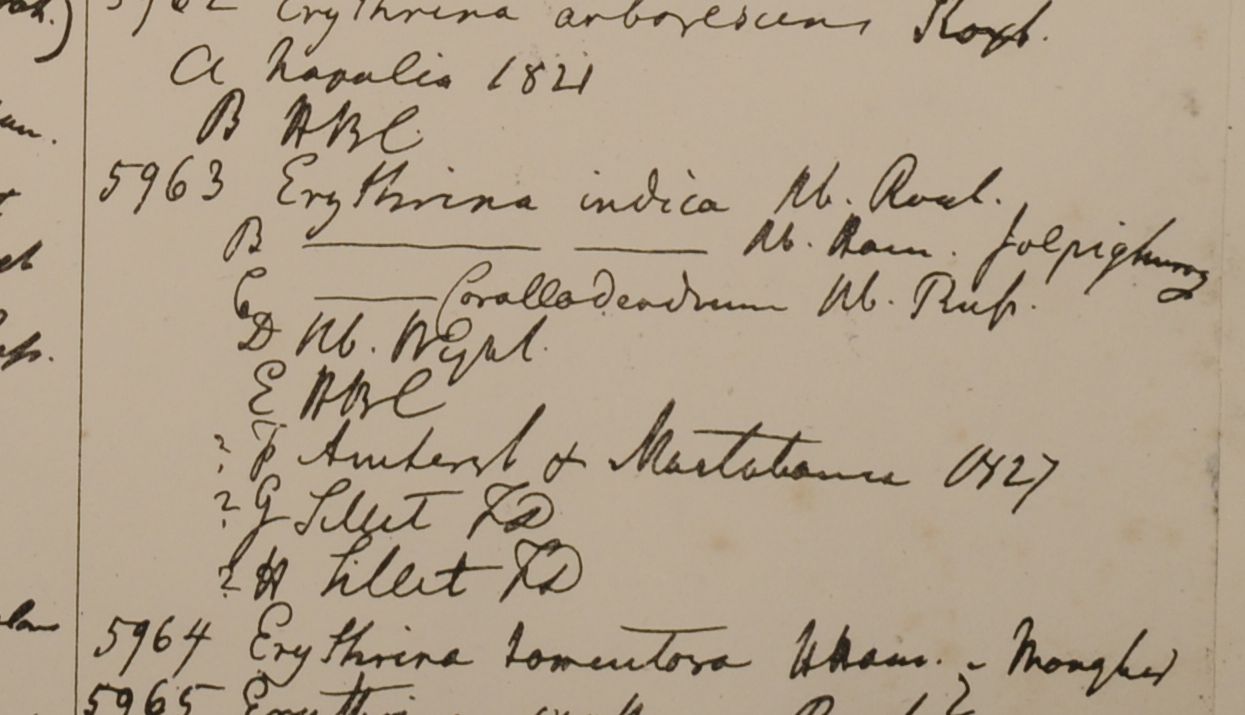 5962 Erythrina arborescens Roxb.
a Napalia 1821
B HBC
5963 Erythrina indica Hb. Roxb.
B ——— ——— Hb. Ham. Jolpighurry
C ——— Corallodendrum Hb. Russ.
D Hb. Wight.
E HBC
? F Amherst & Martabania 1827
? G Sillet FD
? H Sillet FD
5964 Erythrina tomentosa HHam. - Monghir
5965